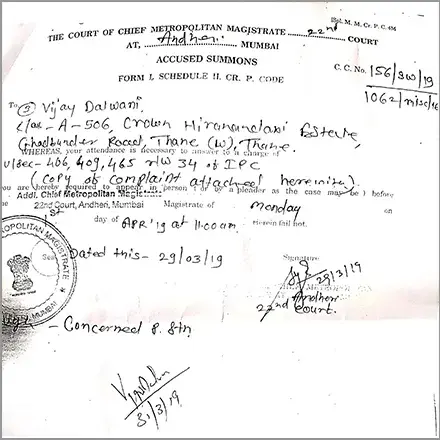 Spl. M. M. Cr. P. C. 434
THE COURT OF CHIEF METROPOLITAN MAGISTRATE 22nd COURT
AT, Andheri MUMBAI
ACCUSED SUMMONS
FORM I, SCHEDULE II, CR. P. CODE
C. C. No. 156/SW/19
1062/misc/
To ③ Vijay Dalwani,
A-506, Crown Hiranandani Estate,
Ghodbunder Road Thane (W), Thane.
WHEREAS, your attendance is necessary to answer to a charge of
U/sec- 406, 409, 465 r/w 34 of IPC
(Copy of Complaint attached hereinto)
you are hereby required to appear in person (or by a pleader as the case may be) before
the Addl. Chief Metropolitan Magistrate
22nd Court, Andheri, Mumbai Magistrate of
monday
1st day of Apr '19 at 11:00 am Herein fail not.
Dated this - 29/03/19
Seal
Signature
29/3/19
Andheri
22nd Court.
METROPOLITAN MAGISTRATE
MUMBAI
- Concerned P. Stn
31/3/19